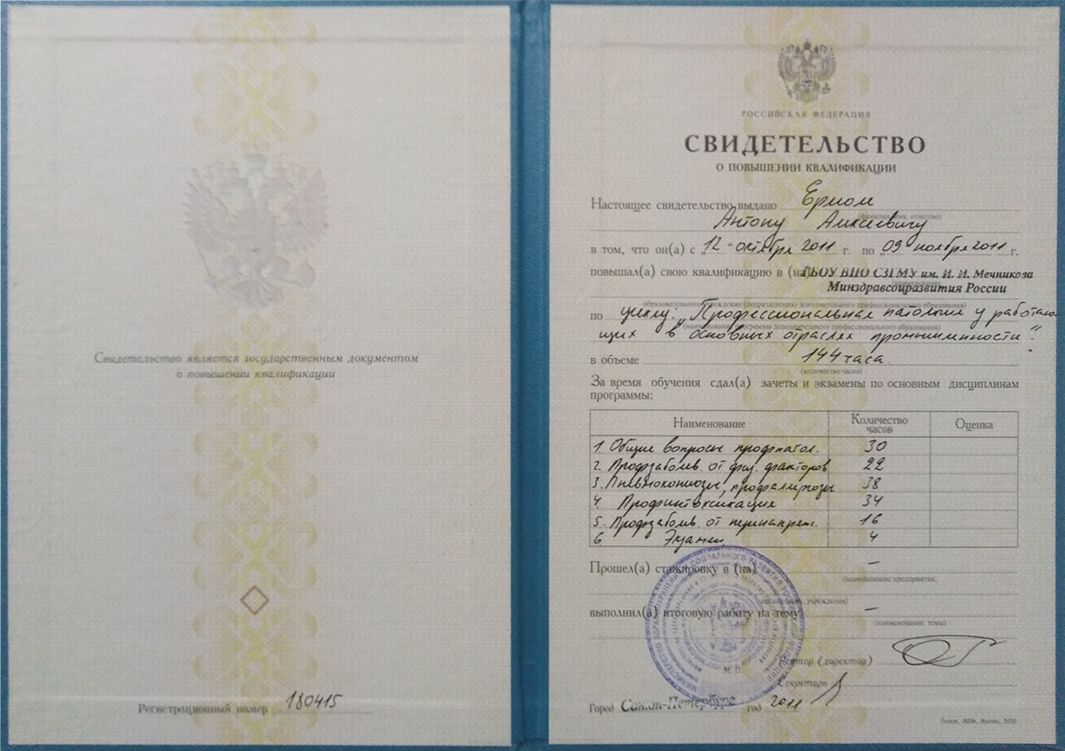 Свидетельство является государственным документом
о повышении квалификации
Регистрационный номер 180415
РОССИЙСКАЯ ФЕДЕРАЦИЯ
СВИДЕТЕЛЬСТВО
О ПОВЫШЕНИИ КВАЛИФИКАЦИИ
Настоящее свидетельство выдано
Антону Алексеевичу
в том, что он(а) с „12“ октября 2011 г. по „09“ ноября 2011 г.
повышал(а) свою квалификацию в (на) ГБОУ ВПО СЗГМУ им. И. И. Мечникова
Минздравсоцразвития России
по циклу: „Профессиональная патология у работаю-
щих в основных отраслях промышленности“.
в объеме 144 часа
(количество часов)
За время обучения сдал(а) зачеты и экзамены по основным дисциплинам
программы:
Наименование Количество часов Оценка
1. Общие вопросы профпатол. 30
2. Профзаболев. от физ. факторов 22
3. Пневмокониозы, профаллергозы 38
4. Профинтоксикация 34
5. Профзаболев. от перенапряж. 16
6. Экзамен 4
Прошел(а) стажировку в (на) –
(наименование предприятия,
организации, учреждения)
выполнил(а) итоговую работу на тему –
(наименование темы)
М.П.
Ректор (директор)
Секретарь
Город Санкт-Петербург год 2011